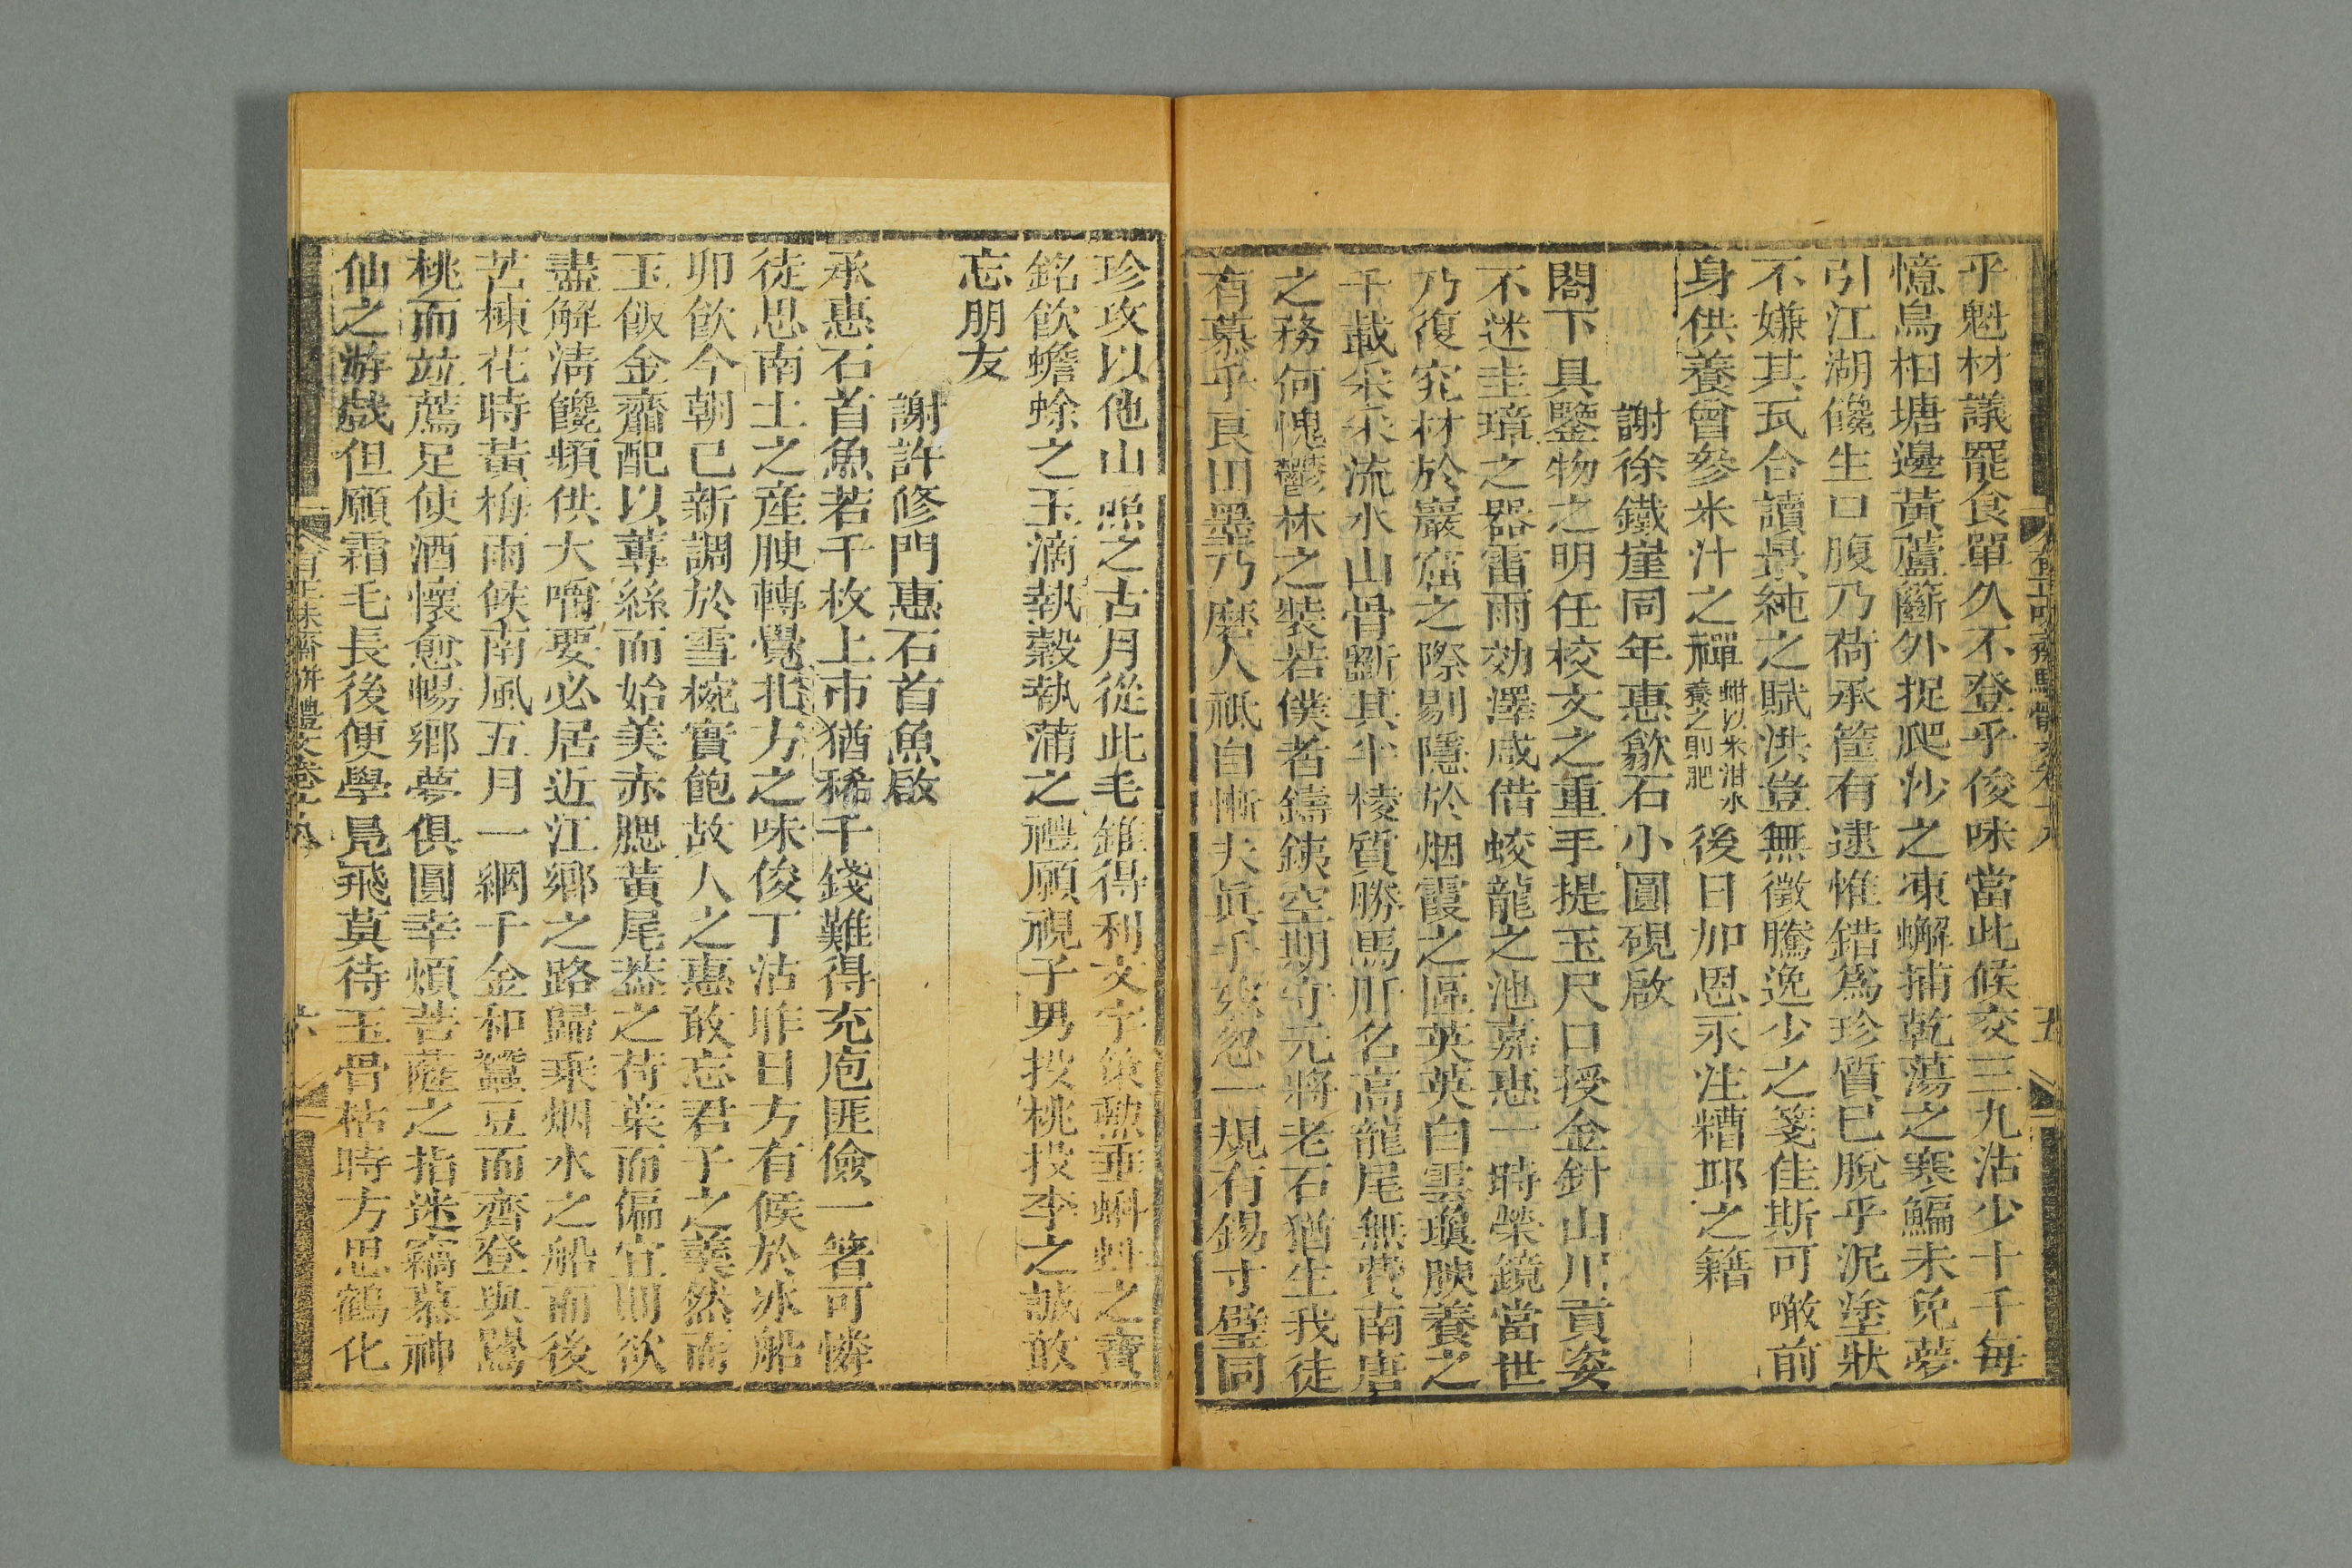 乎魁材議罷食單久不登乎俊味當此候交三九沽少十千每
憶烏桕塘邊黃蘆籪外捉爬沙之凍蠏捕乾蕩之寒鯿未免夢
引江湖饞生口腹乃荷承筐有逮惟錯爲珍質已脫乎泥塗狀
不嫌其瓦合讀景純之賦洪豈無徵騰逸少之箋佳斯可噉前
身供養曾參米汁之禪蚶以米泔水養之則肥後日加恩永注糟邱之籍
謝徐鐵崖同年惠歙石小圓硯啟
閣下具鑒物之明任校文之重手提玉尺口授金針山川貢姿
不迷圭璋之器雷雨効澤咸借蛟龍之池嘉惠一時榮鏡當世
乃復究材於巖窟之際剔隱於烟霞之區英英白雲瓊腴養之
千載采采流水山骨斲其半棱質勝馬肝名高龍尾無費南唐
之務何愧鬱林之裝若僕者鑄鐵空期守元將老石猶生我徒
有慕乎良田墨乃磨人祗自慚夫眞手玆忽一規有錫寸璧同
珍攻以他山照之古月從此毛錐得利文字策勲垂蝌蚪之寶
銘飲蟾蜍之玉滴執縠執蒲之禮願視子男投桃投李之誠敢
忘朋友
謝許修門惠石首魚啟
承惠石首魚若干枚上市猶稀千錢難得充庖匪儉一箸可憐
徒思南土之產腴轉覺北方之味俊丁沽昨日方有候於冰船
卯飲今朝已新調於雪椀實飽故人之惠敢忘君子之羹然而
玉飯金虀配以蓴絲而始美赤腮黃尾葢之荷葉而偏宜則欲
盡解淸饞頻供大嚼要必居近江鄉之路歸乘烟水之船而後
苦楝花時黃梅雨候南風五月一網千金和蠶豆而齊登與鶯
桃而竝薦足使酒懷愈暢鄉夢俱圓幸煩菩薩之指迷竊慕神
仙之游戲但願霜毛長後便學鳧飛莫待玉骨枯時方思鶴化
有正味齋駢體文卷十九
五
有正味齋駢體文卷十九
六